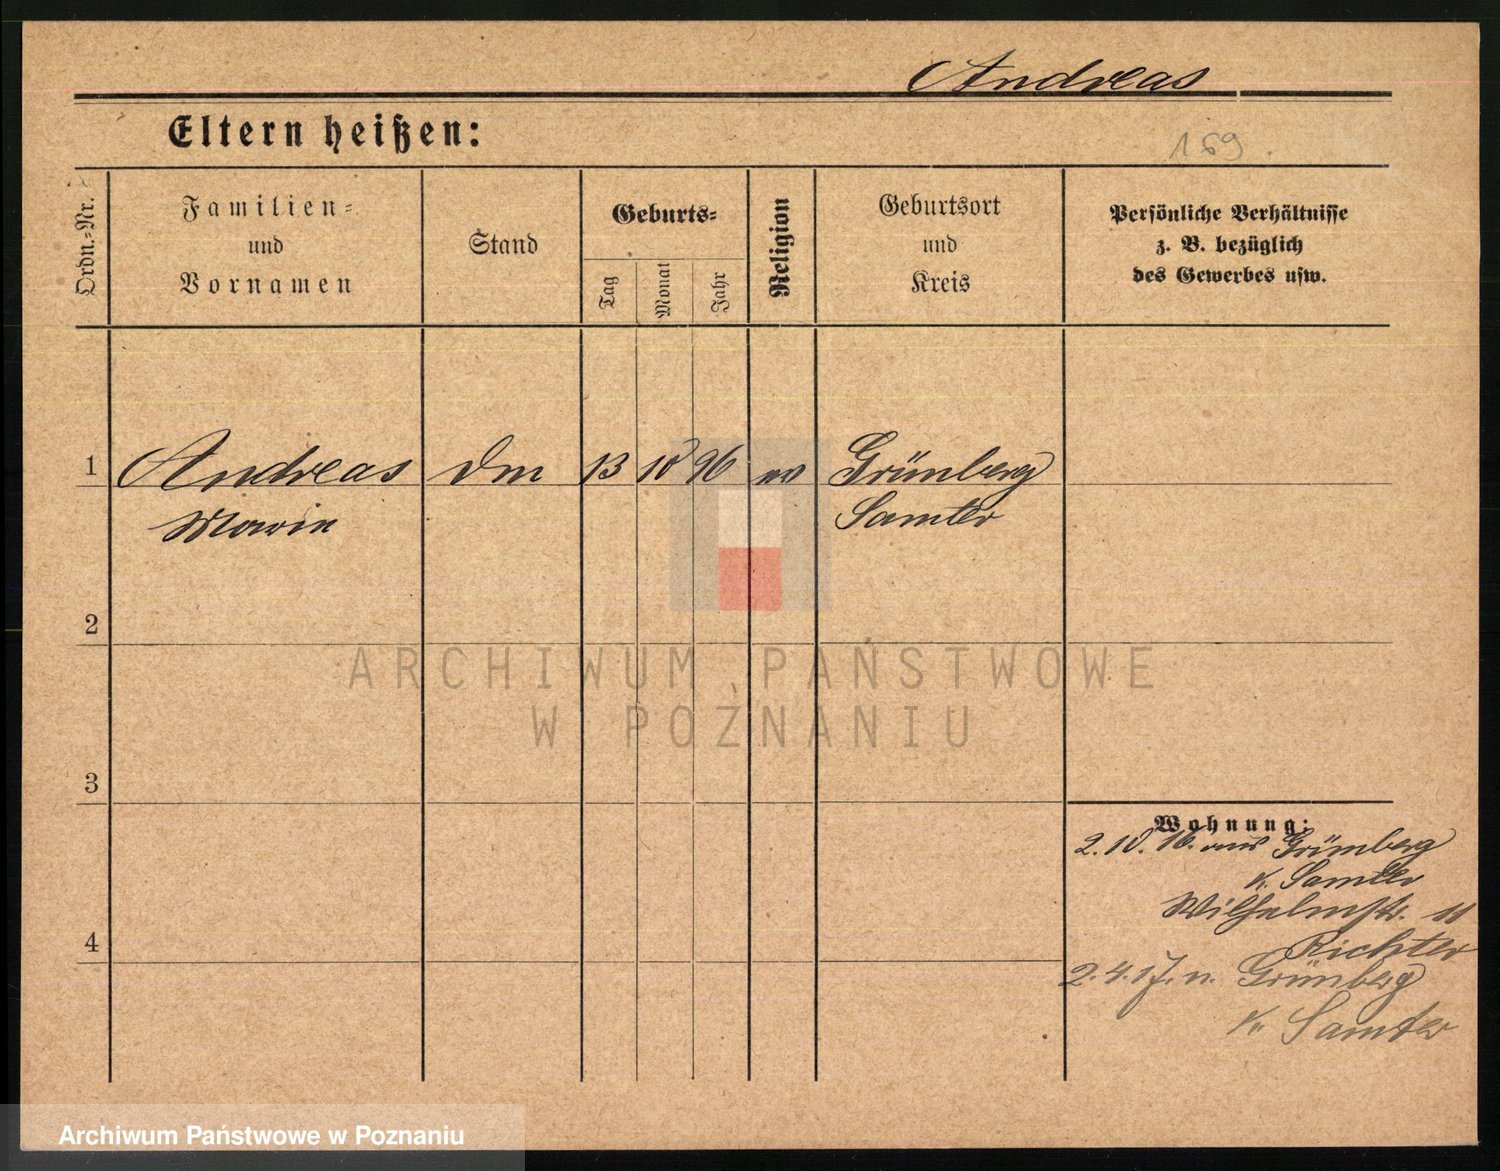 Andreas
Eltern heißen:
169.
Ordn.-Nr.
Familien-
und
Vornamen
Stand
Geburts-
Tag
Monat
Jahr
Religion
Geburtsort
und
Kreis
Persönliche Verhältnisse
z. B. bezüglich
des Gewerbes usw.
1
Andreas
Dm
13
10
96
ev
Grünberg
Marie
Samter
2
ARCHIWUM PAŃSTWOWE
W POZNANIU
3
Wohnung:
2. 10. 16. aus Grünberg
K. Samter
Wilhelmstr. 11
Richter
4
2. 4. 17. n. Grünberg
K. Samter
Archiwum Państwowe w Poznaniu